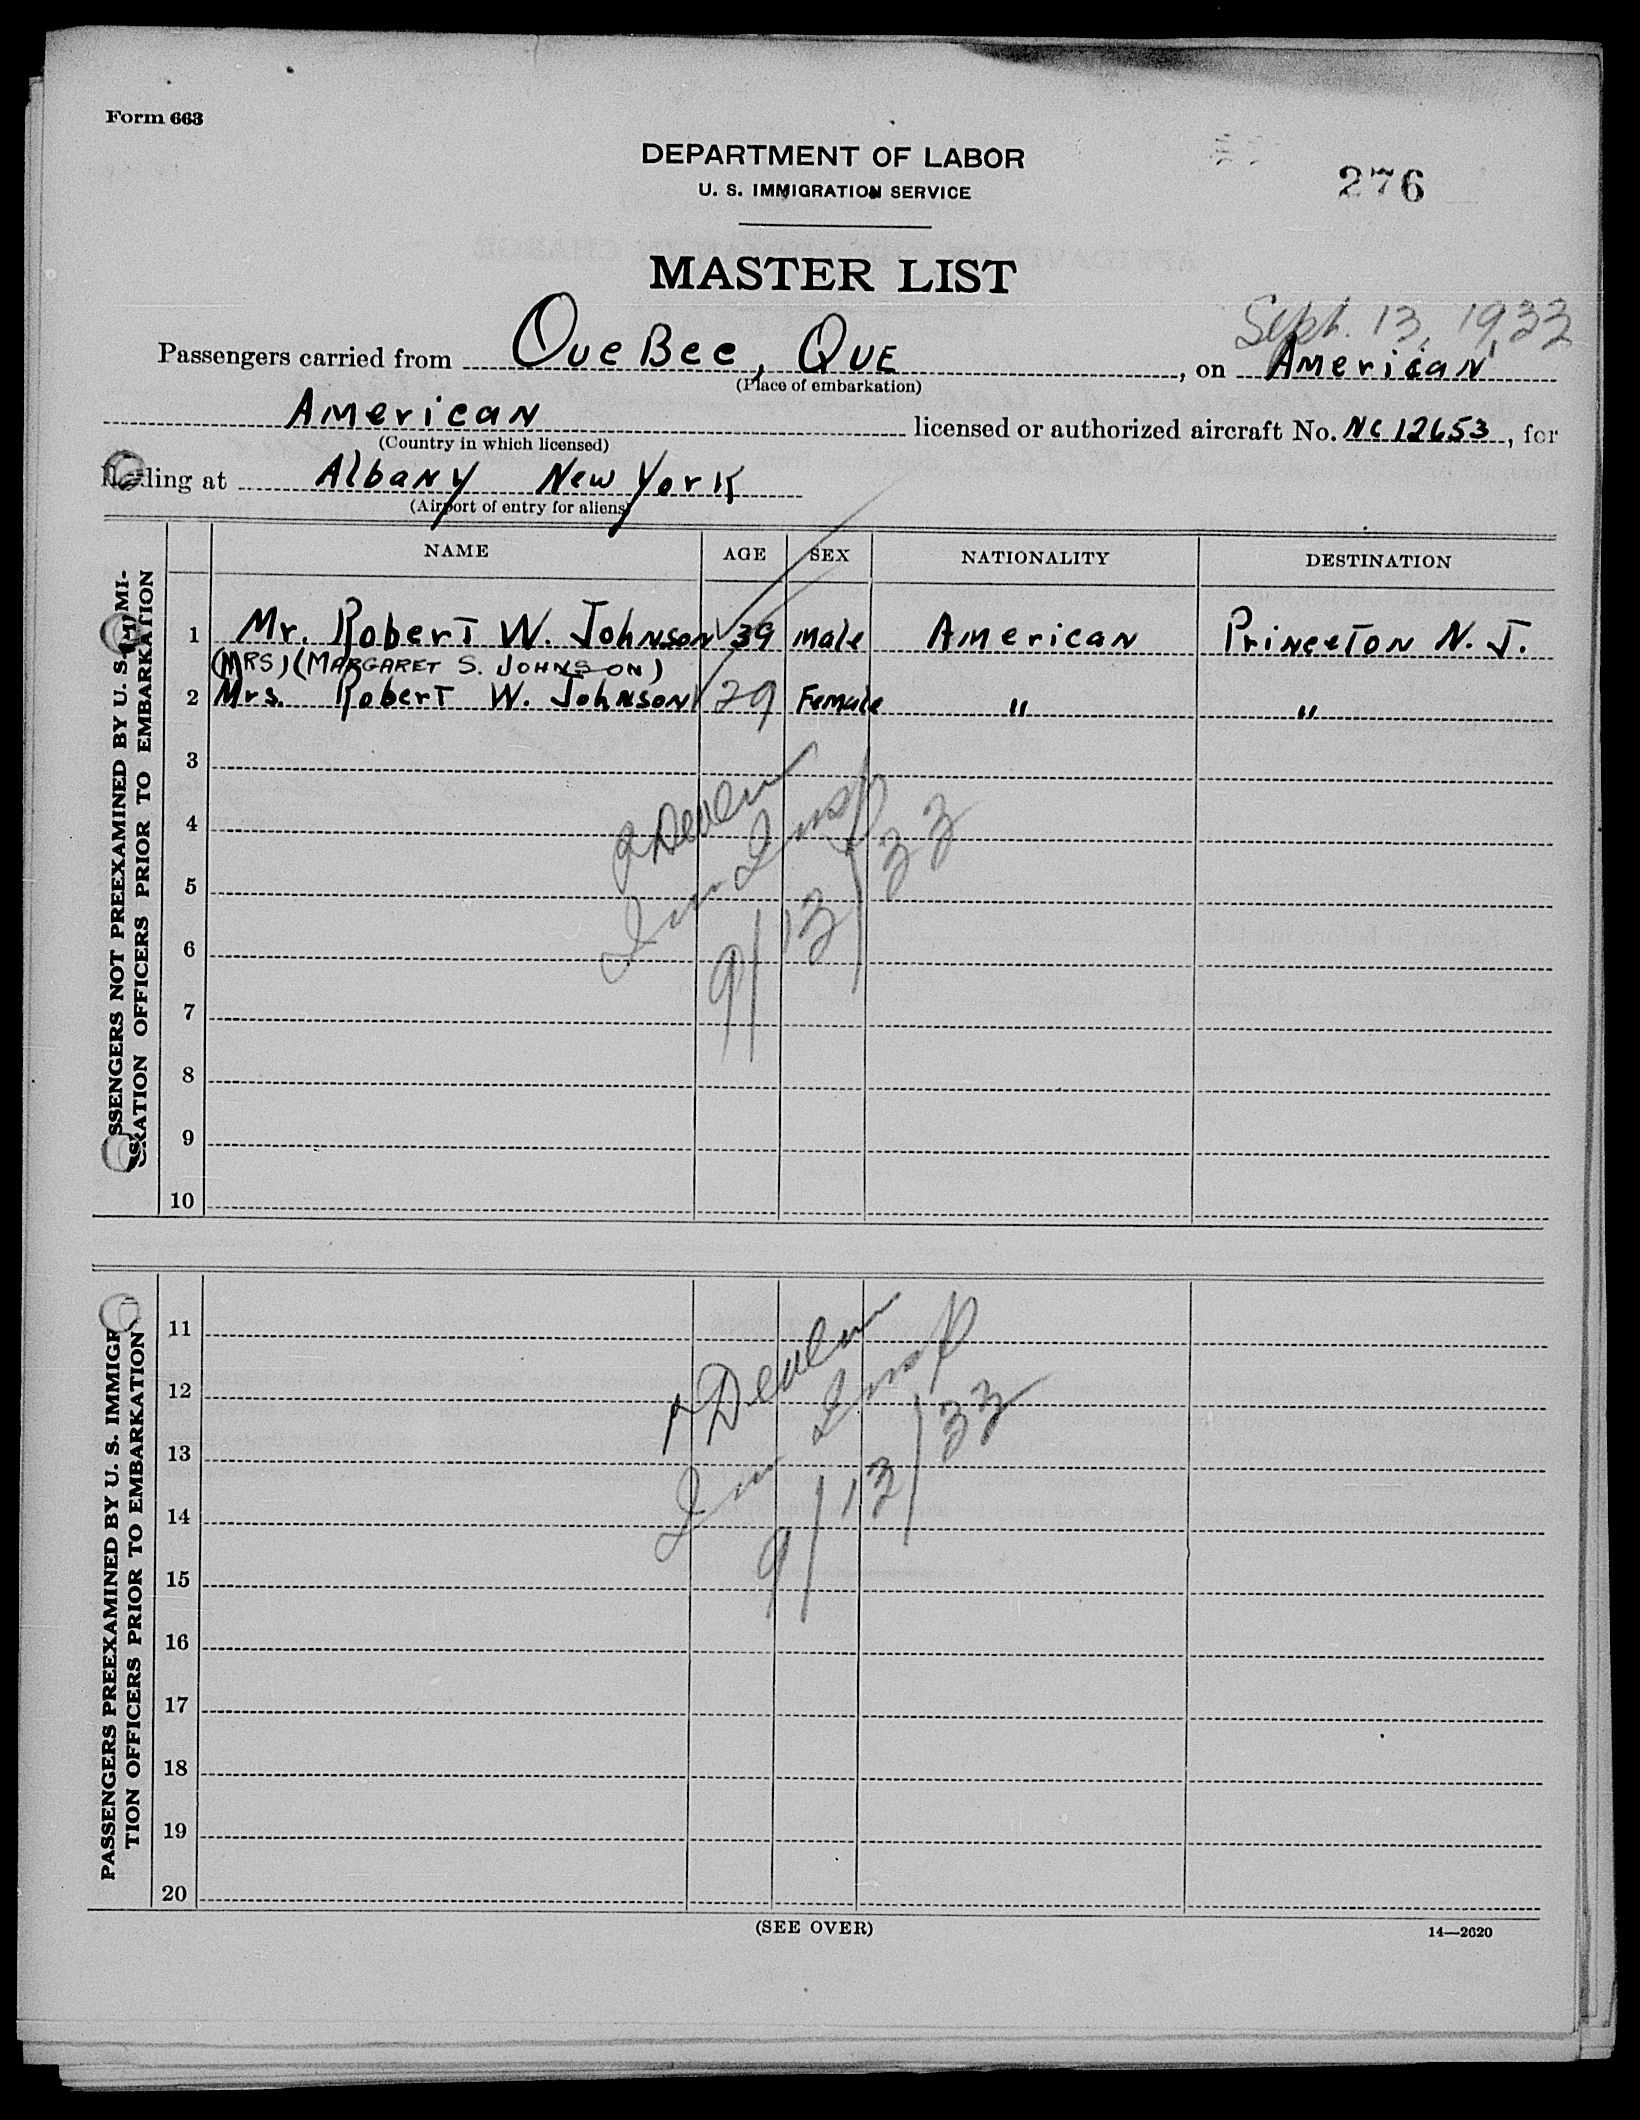 Form 663
DEPARTMENT OF LABOR
U. S. IMMIGRATION SERVICE
276
MASTER LIST
Sept. 13, 1933
Passengers carried from QueBec, QUE, on American
(Place of embarkation)
American licensed or authorized aircraft No. NC 12653, for
(Country in which licensed)
ling at Albany New York
(Airport of entry for aliens)
NAME AGE SEX NATIONALITY DESTINATION
SSENGERS NOT PREEXAMINED BY U. S. IMMI-
GRATION OFFICERS PRIOR TO EMBARKATION
1 Mr. Robert W. Johnson 39 Male American Princeton N. J.
(MRS) (MARGARET S. JOHNSON)
2 Mrs. Robert W. Johnson 29 Female " "
3
4
5
6
7
8
9
10
Imm Insp
9/13/33
PASSENGERS PREEXAMINED BY U. S. IMMIGR
TION OFFICERS PRIOR TO EMBARKATION
11
12
13
14
15
16
17
18
19
20
Imm Insp
9/13/33
(SEE OVER)
14—2620